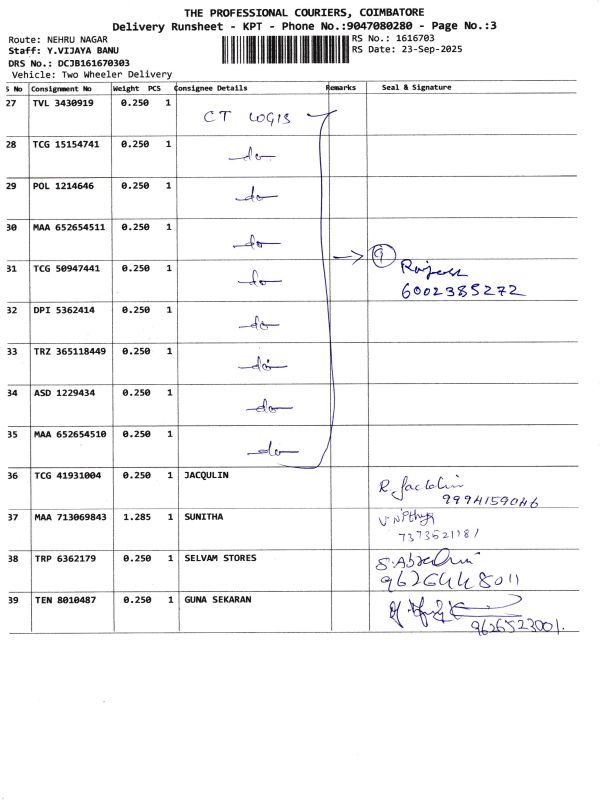 THE PROFESSIONAL COURIERS, COIMBATORE
Delivery Runsheet - KPT - Phone No.:9047080280 - Page No.:3
Route: NEHRU NAGAR
RS No.: 1616703
Staff: Y.VIJAYA BANU
RS Date: 23-Sep-2025
DRS No.: DCJB161670303
Vehicle: Two Wheeler Delivery
S No Consignment No Weight PCS Consignee Details Remarks Seal & Signature
27 TVL 3430919 0.250 1 CT LOGIS
28 TCG 15154741 0.250 1 do
29 POL 1214646 0.250 1 do
30 MAA 652654511 0.250 1 do
9
31 TCG 50947441 0.250 1 do Rajesh
6002385272
32 DPI 5362414 0.250 1 do
33 TRZ 365118449 0.250 1 do
34 ASD 1229434 0.250 1 do
35 MAA 652654510 0.250 1 do
36 TCG 41931004 0.250 1 JACQULIN R. Jacklin
9994159046
37 MAA 713069843 1.285 1 SUNITHA V Nithya
7373521181
38 TRP 6362179 0.250 1 SELVAM STORES
9626448011
39 TEN 8010487 0.250 1 GUNA SEKARAN
9626523001.